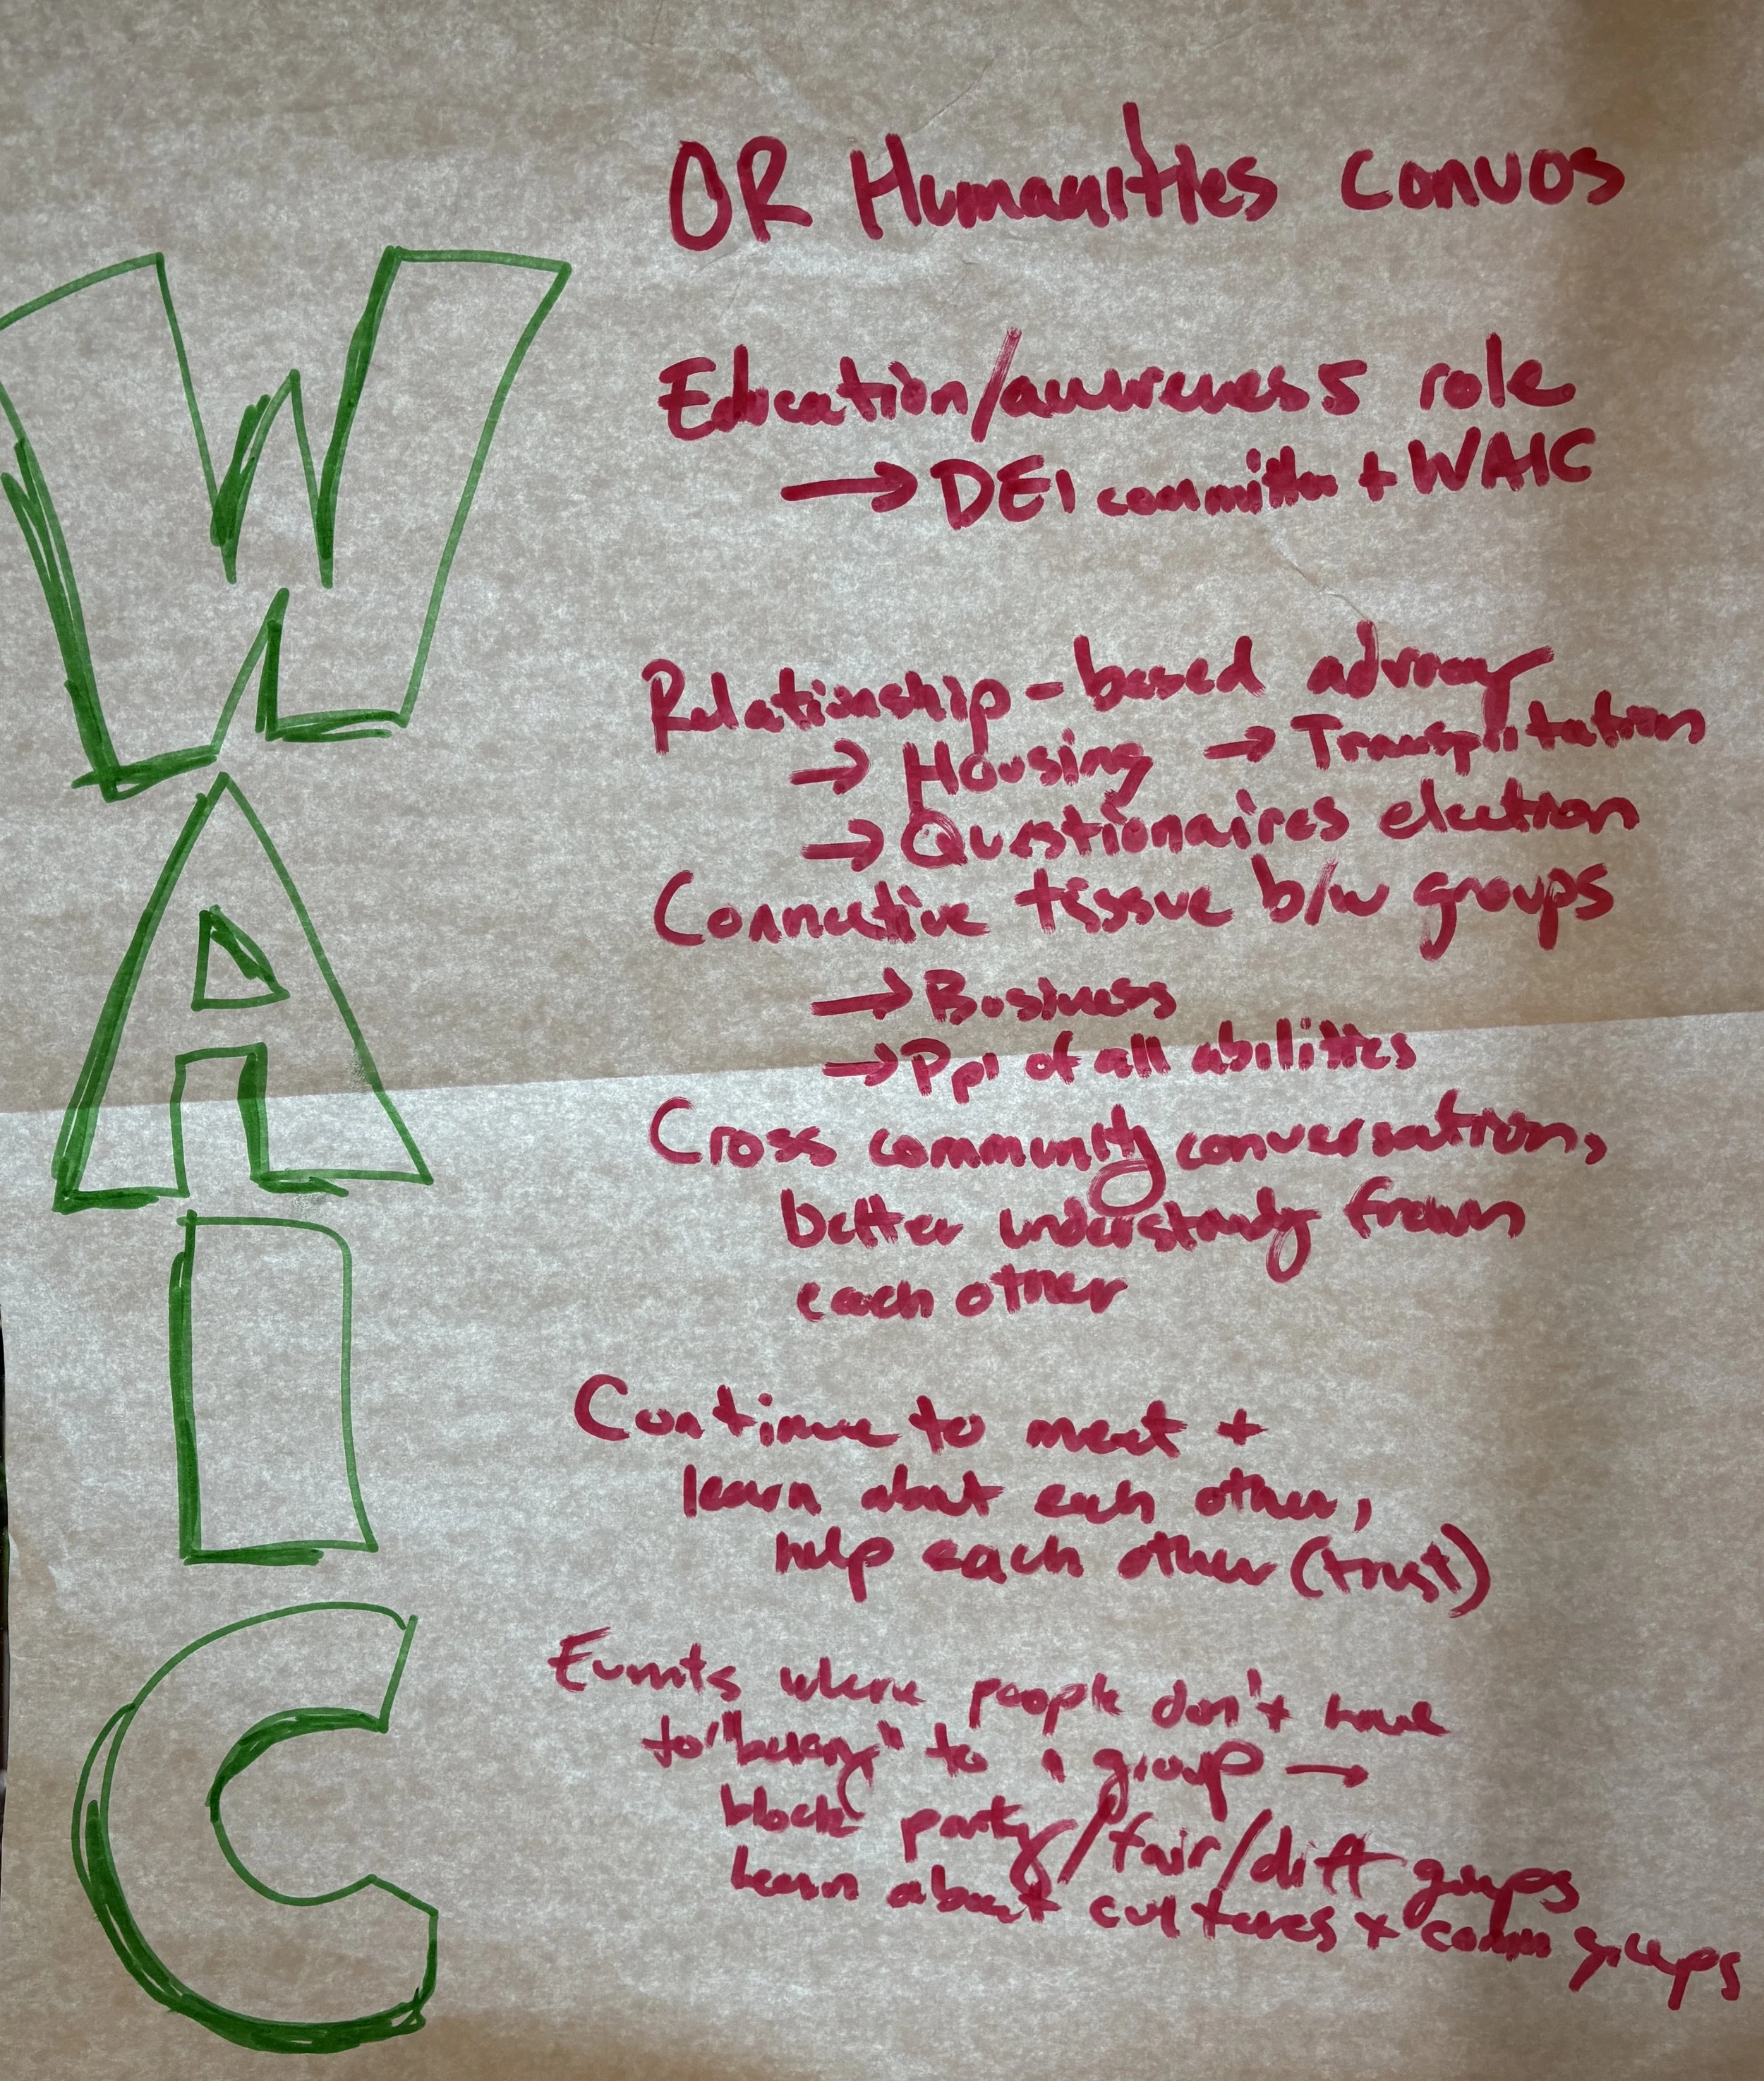 OR Humanities convos
WAIC
Education/awareness role
→ DEI committee + WAIC
Relationship-based advocacy
→ Housing → Transportation
→ Questionaires election
Connective tissue b/w groups
→ Business
→ Ppl of all abilities
Cross community conversations,
better understandg from
each other
Continue to meet +
learn about each other,
help each other (trust)
Events where people don't have
to "belong" to 1 group →
block party/fair/diff groups
learn about cultures + comm groups